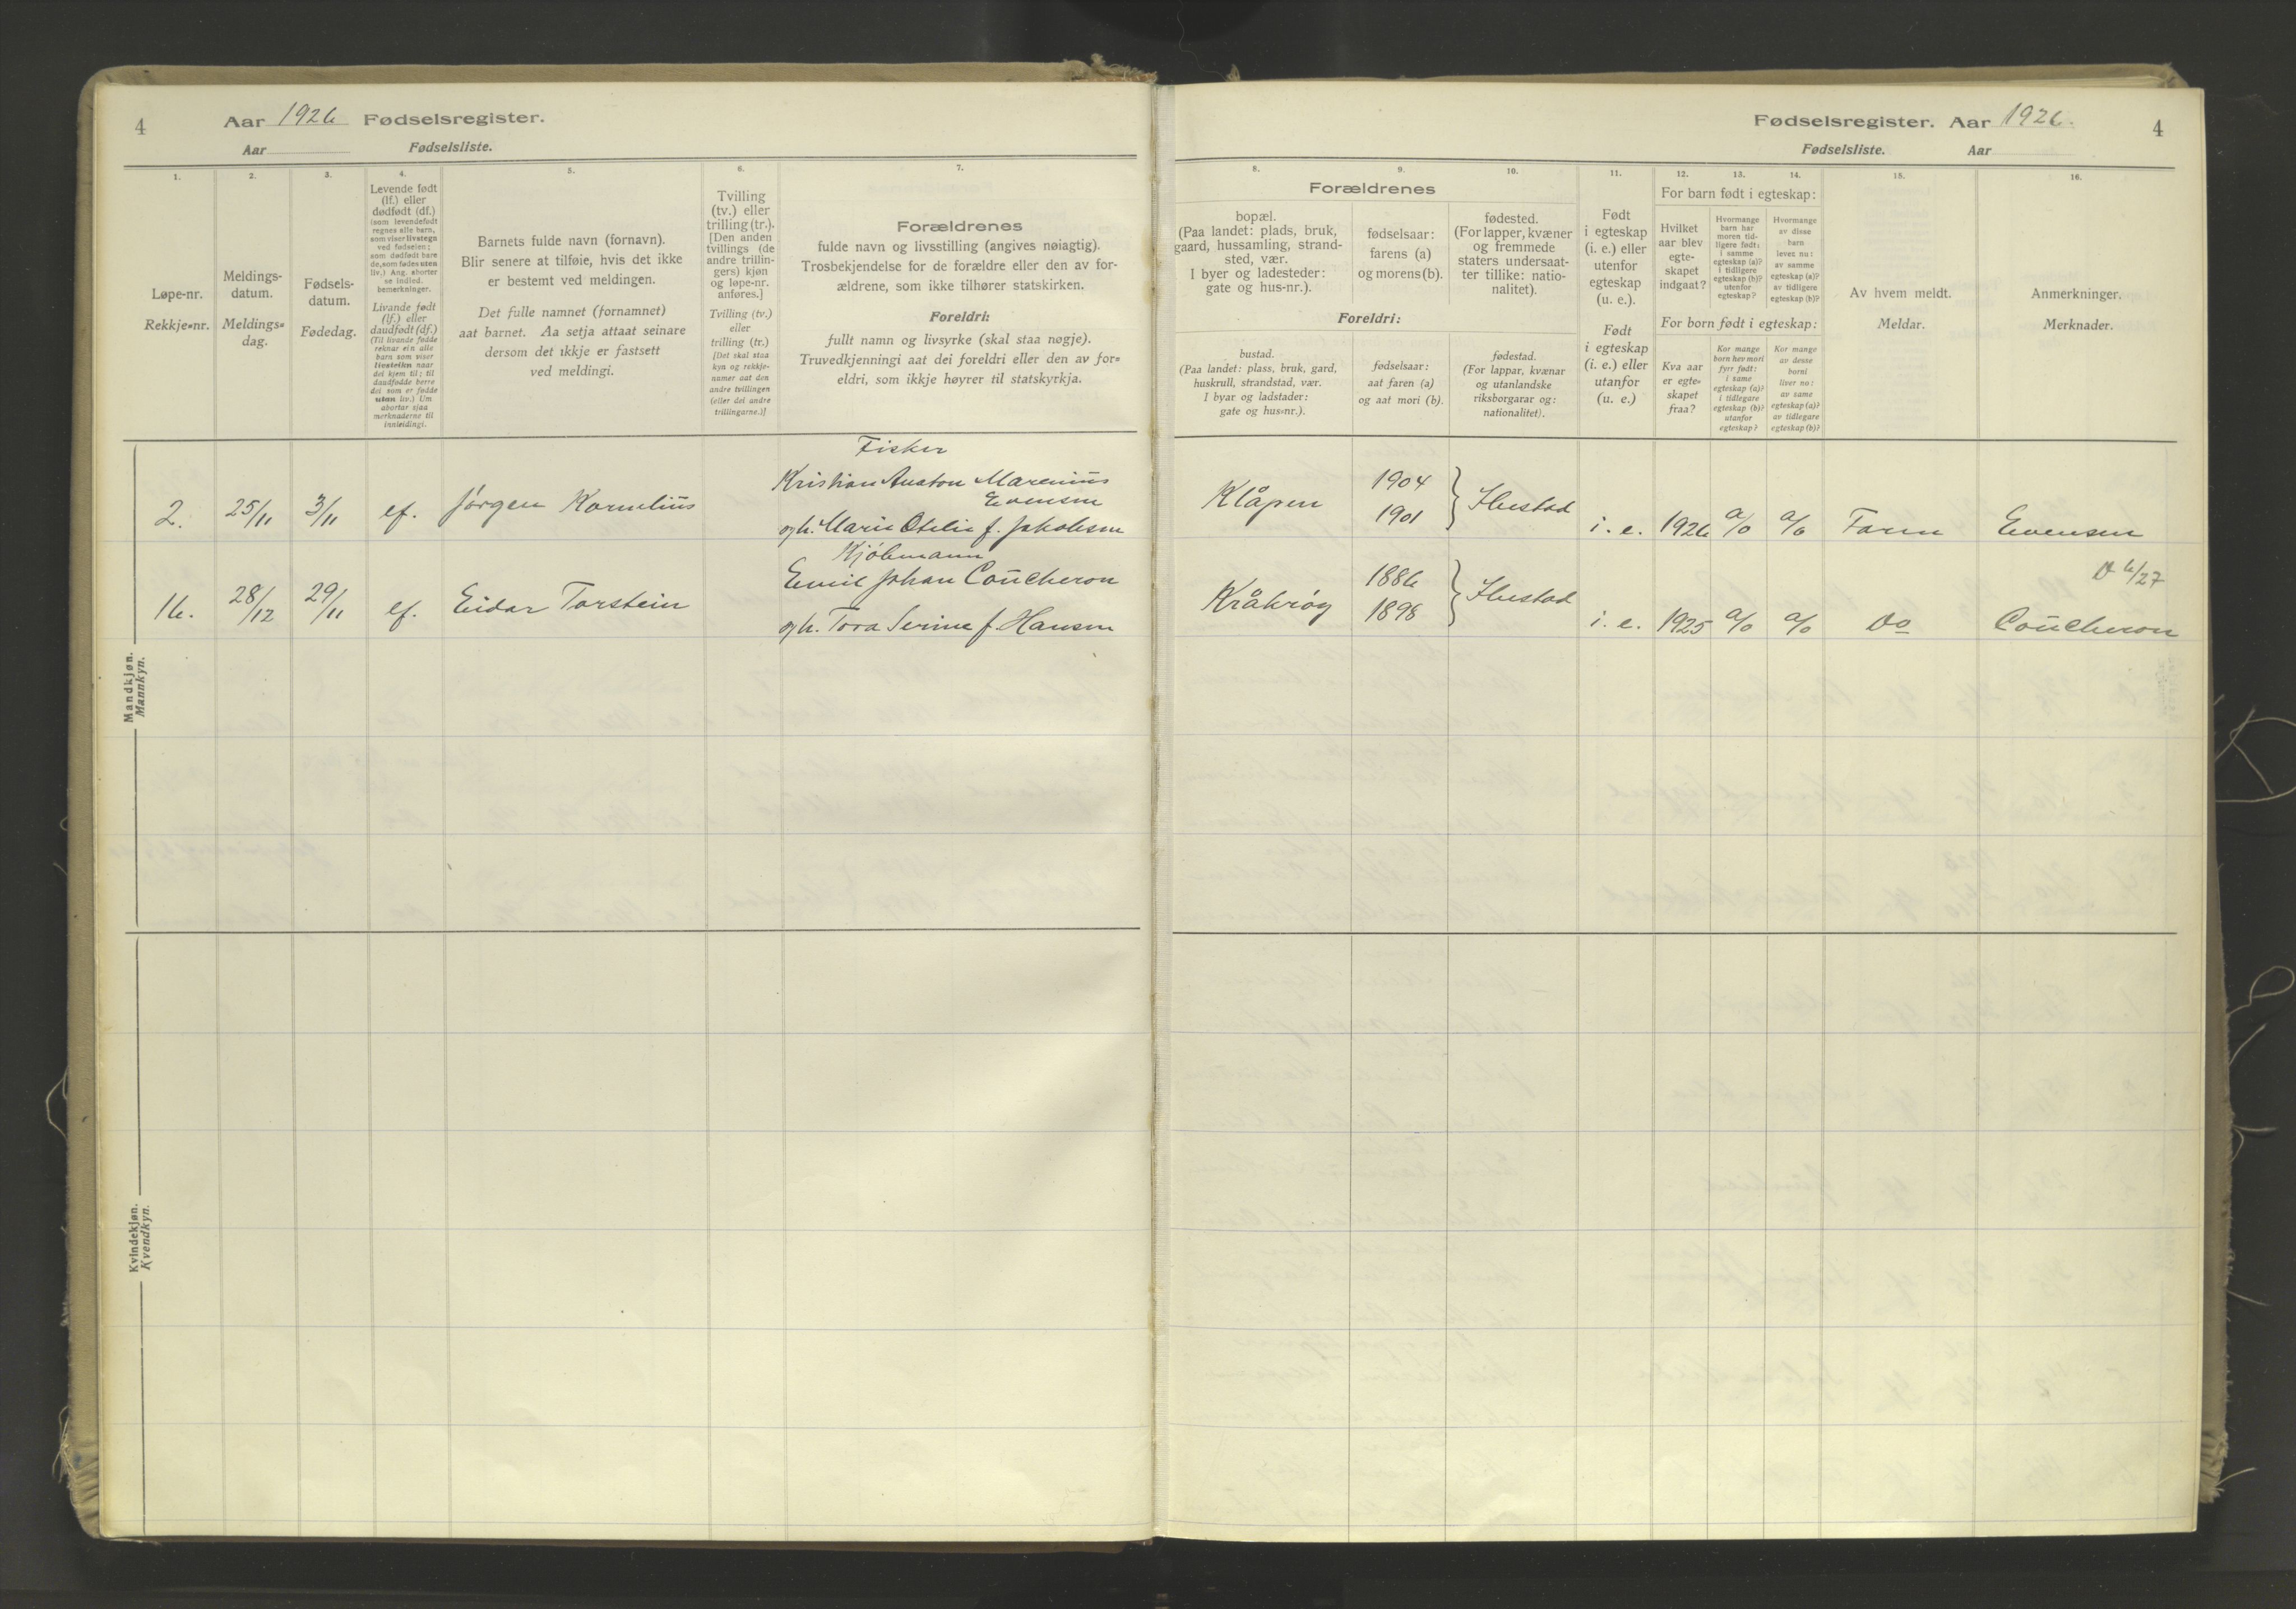 4 Aar 1926 Fødselsregister.
Aar Fødselsliste.
Fødselsregister. Aar 1926. 4
Fødselsliste. Aar
1.
Løpe-nr.
Rekkje-nr.
2.
Meldings-
datum.
Meldings-
dag.
3.
Fødsels-
datum.
Fødedag.
4.
Levende født
(lf.) eller
dødfødt (df.)
(som levendefødt
regnes alle barn,
som viser livstegn
ved fødselen;
som dødfødt bare
de, som fødes uten
liv.) Ang. aborter
se indled.
bemerkninger.
Livande født
(lf.) eller
daudfødt (df.)
(Til livande fødde
reknar ein alle
barn som viser
livsteikn naar
dei kjem til; til
daudfødde berre
dei som er fødde
utan liv.) Um
abortar sjaa
merknaderne til
innleidingi.
5.
Barnets fulde navn (fornavn).
Blir senere at tilføie, hvis det ikke
er bestemt ved meldingen.
Det fulle namnet (fornamnet)
aat barnet. Aa setja attaat seinare
dersom det ikkje er fastsett
ved meldingi.
6.
Tvilling
(tv.) eller
trilling (tr.).
[Den anden
tvillings (de
andre trillin-
gers) kjøn
og løpe-nr.
anføres.]
Tvilling (tv.)
eller
trilling (tr.)
[Det skal staa
kyn og rekkje-
numer aat den
andre tvillingen
(eller dei andre
trillingarne.)]
7.
Forældrenes
fulde navn og livsstilling (angives nøiagtig).
Trosbekjendelse for de forældre eller den av for-
ældrene, som ikke tilhører statskirken.
Foreldri:
fullt namn og livsyrke (skal staa nøgje).
Truvedkjenningi aat dei foreldri eller den av for-
eldri, som ikkje høyrer til statskyrkja.
8. 9. 10.
Forældrenes
bopæl.
(Paa landet: plads, bruk,
gaard, hussamling, strand-
sted, vær.
I byer og ladesteder:
gate og hus-nr.).
fødselsaar:
farens (a)
og morens (b).
fødested.
(For lapper, kvæner
og fremmede
staters undersaat-
ter tillike: natio-
nalitet).
Foreldri:
bustad.
(Paa landet: plass, bruk, gard,
huskrull, strandstad, vær.
I byar og ladstader:
gate og hus-nr.).
fødselsaar:
aat faren (a)
og aat mori (b).
fødestad.
(For lappar, kvænar
og utanlandske
riksborgarar og:
nationalitet).
11.
Født
i egteskap
(i. e.) eller
utenfor
egteskap
(u. e.).
Født
i egteskap
(i. e.) eller
utanfor
(u. e.)
12. 13. 14.
For barn født i egteskap:
Hvilket
aar blev
egte-
skapet
indgaat?
Hvormange
barn har
moren tid-
ligere født:
i samme
egteskap (a)?
i tidligere
egteskap (b)?
utenfor
egteskap?
Hvormange
av disse
barn
lever nu:
av samme
egteskap (a)?
av tidligere
egteskap (b)?
For born født i egteskap:
Kva aar
er egte-
skapet
fraa?
Kor mange
born hev mori
fyrr født:
i same
egteskap (a)?
i tidlegare
egteskap (b)?
utanfor
egteskap?
Kor mange
av desse
borni
liver no:
av same
egteskap (a)?
av tidlegare
egteskap (b)?
15.
Av hvem meldt.
Meldar.
16.
Anmerkninger.
Merknader.
Mandkjøn.
Mannkyn.
Fisker
Kristian Anton Marenius
Evensen
2. 25/11 3/11 lf. Jørgen Kornelius
og h. Marie Otelie f. Jakobsen
Klåpen 1904 1901 } Ibestad i. e. 1926 a/0 a/0 Faren Evensen
Kjøbmann
Emil Johan Coucheron
16. 28/12 29/11 lf. Eidar Torstein
og h. Tora Serine f. Hansen
Kråkrøy 1886 1898 } Ibestad i. e. 1925 a/0 a/0 Do Coucheron
6/27
Kvindekjøn.
Kvendkyn.